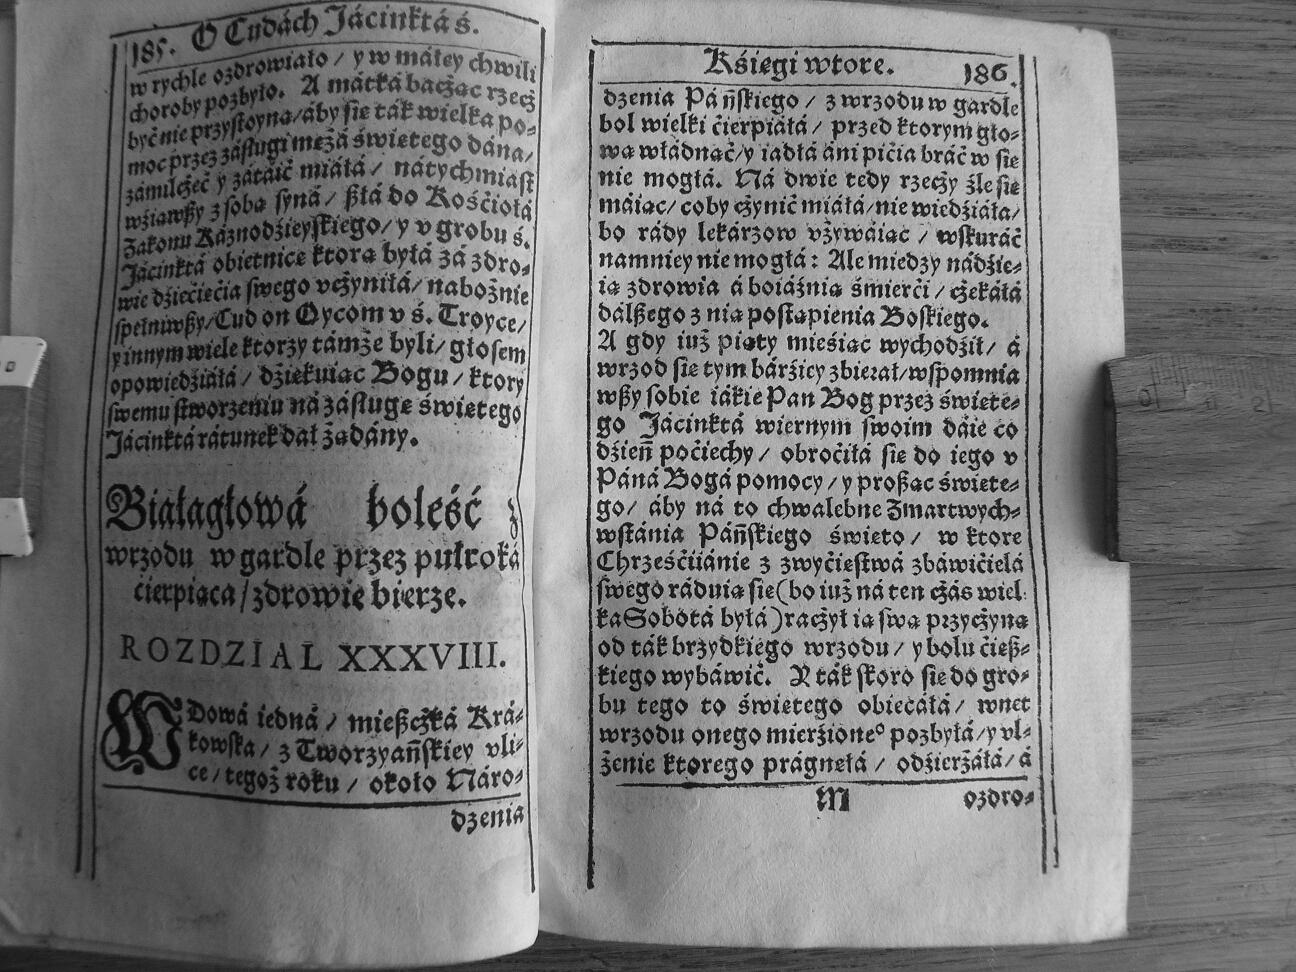 185. O Cudách Jácinktá ś.
w rychle ozdrowiáło / y w máłey chwili
choroby pozbyło. A mátká bacżąc rzecż
być nie przystoyną / áby się ták wielka po-
moc przez zasługi mężá świętego dána /
zámilcżeć y zátáić miáłá / nátychmiast
wźiąwßy z sobą syná / ßłá do Kośćiołá
Zakonu Káznodźieyskiego / y v grobu ś.
Jácinktá obietnicę ktorą byłá zá zdro-
wie dźiećięćia swego vcżyniłá / nabożnie
spełniwßy / Cud on Oycom v ś. Troyce /
y innym wiele ktorzy támże byli / głosem
opowiedźiáłá / dźiękuiąc Bogu / ktory
swemu stworzeniu ná zásługę świętego
Jácinktá rátunek dał żadány.
Białagłowá boleść z
wrzodu w gardle przez pułroká
ćierpiąca / zdrowie bierze.
ROZDZIAL XXXVIII.
WDowá iedná / mießcżká Krá-
kowska / z Tworzyáńskiey vli-
ce / tegoż roku / około Náro-
dzenia
Kśięgi wtore. 186.
dzenia Páńskiego / z wrzodu w gardle
bol wielki ćierpiáłá / przed ktorym gło-
wą władnąć / y iadłá áni pićia bráć w się
nie mogłá. Ná dwie tedy rzecży źle się
máiąc / coby cżynić miáłá / nie wiedźiáłá /
bo rády lekárzow vżywáiąc / wskuráć
namniey nie mogłá: Ale miedzy nádźie-
ią zdrowia á boiáźnią śmierći / cżekáłá
dálßego z nią postąpienia Boskiego.
A gdy iuż piąty mieśiąc wychodźił / á
wrzod się tym bárźiey zbierał / wspomnia
wßy sobie iákie Pan Bog przez święte-
go Jácinktá wiernym swoim dáie co
dźień poćiechy / obroćiłá się do iego v
Páná Bogá pomocy / y proßąc święte-
go / áby ná to chwalebne Zmartwych-
wstánia Páńskiego święto / w ktore
Chrześćiiánie z zwyćięstwá zbáwićielá
swego ráduią się (bo iuż ná ten cżás wiel-
ka Sobotá byłá) racżył ią swą przycżyną
od ták brzydkiego wrzodu / y bolu ćięß-
kiego wybáwić. Y ták skoro się do gro-
bu tego to świętego obiecáłá / wnet
wrzodu onego mierźione° pozbyłá / y vl-
żenie ktorego prágnęłá / odźierżáłá / á
M ozdro-